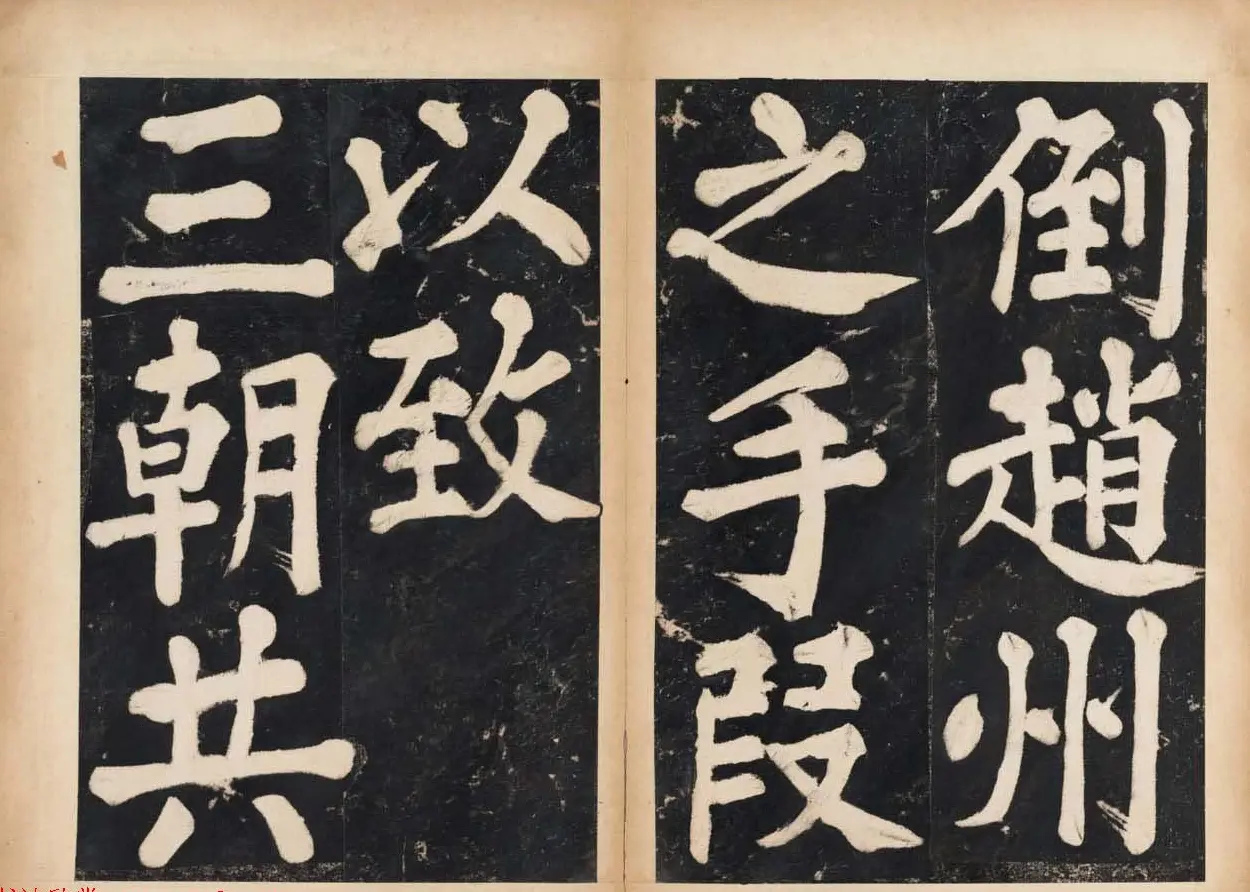 倒趙州
之手段
以致
三朝共